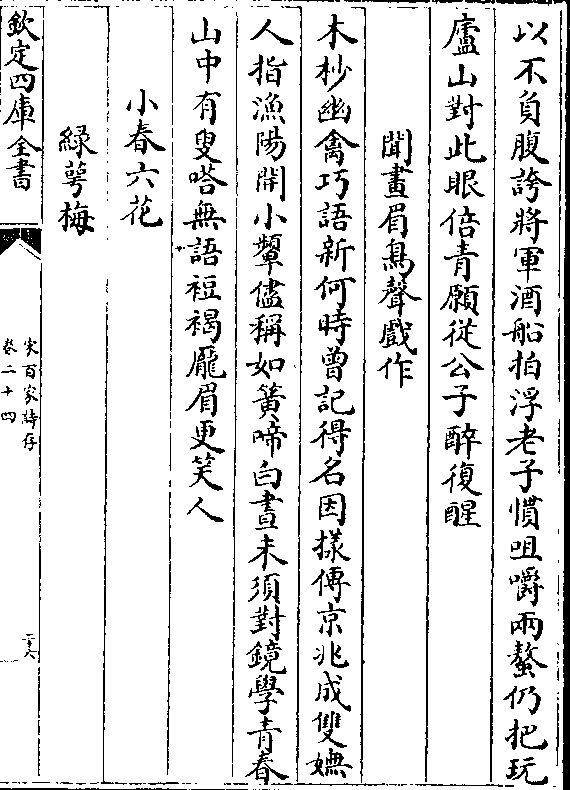 以不負腹誇將軍酒船拍浮老子慣咀嚼兩螯仍把玩
廬山對此眼倍青願從公子醉復醒
聞畫眉鳥聲戲作
木杪幽禽巧語新何時曾記得名因樣傳京兆成雙嫵
人指漁陽開小顰儘稱如簧啼白晝未須對鏡學青春
山中有叟嗒無語裋褐龎眉更笑人
小春六花
緑萼梅
欽定四庫全書
宋百家詩存
卷二十四
二十六